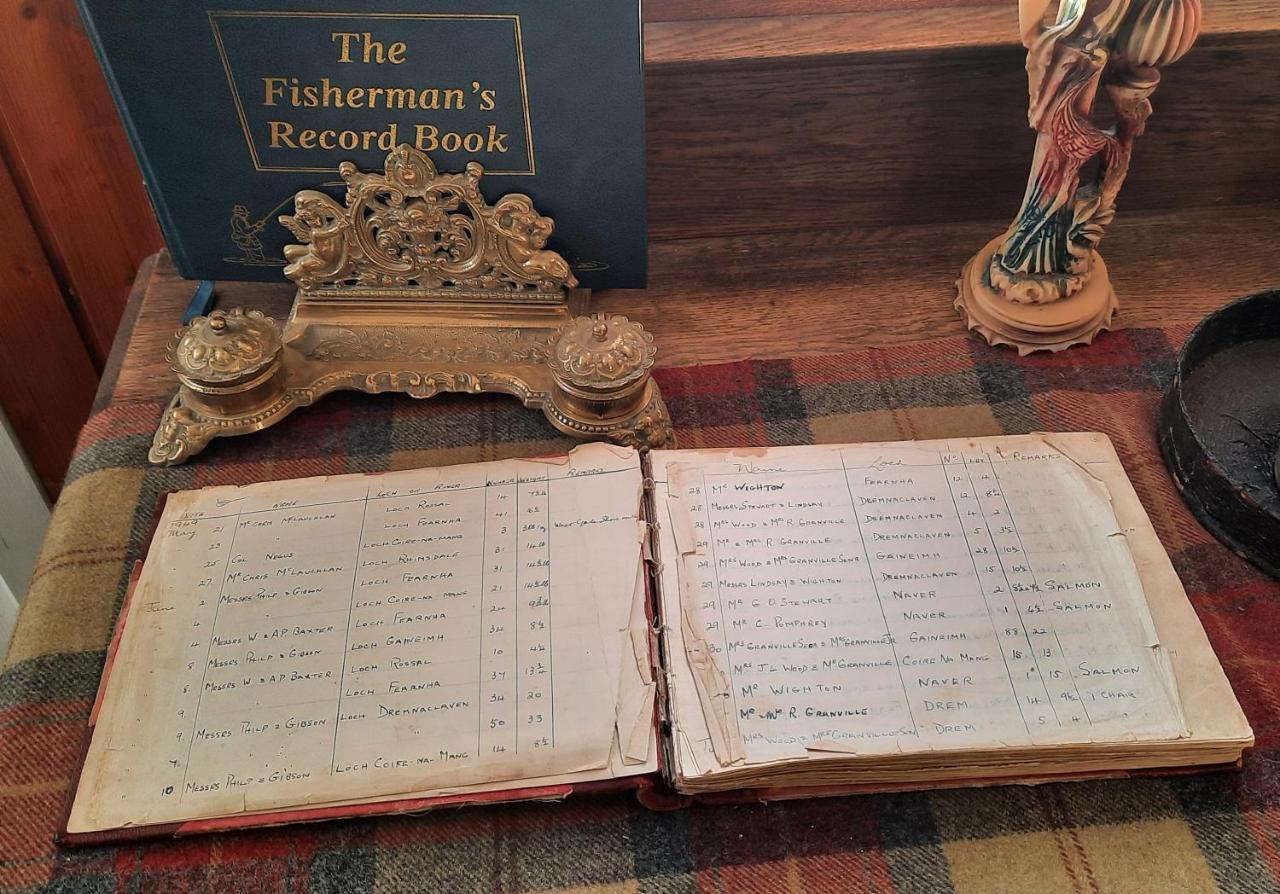 The
Fisherman's
Record Book
DATE NAME LOCH OR RIVER NUMBER WEIGHT REMARKS
1949
May 21 Mr Colm McLauchlan LOCH ROSSAL 14
" LOCH FEARNHA 41
23 LOCH COIRE-NA-MANG 3
25 COL NEGUS LOCH RHIMSDALE 31
27 Mr CHRIS McLAUCHLAN LOCH FEARNHA 31
June 2 MESSRS PHILP & GIBSON LOCH COIRE-NA-MANG 21
4 " LOCH FEARNHA 24
4 MESSRS W. & A.P. BAXTER LOCH GAINEIMH 34 8½
8 MESSRS PHILP & GIBSON LOCH ROSSAL 10 4½
8. MESSRS W. & A.P. BAXTER LOCH FEARNHA 37
9. " LOCH DREMNACLAVEN 34 20
9. MESSRS PHILP & GIBSON " 50 33
10 MESSRS PHILP & GIBSON LOCH COIRE-NA-MANG 14 8½
Name Loch No REMARKS
28 Mr WIGHTON FEARNHA 12 4
28 MESSRS STEWART & LINDSAY DREMNACLAVEN 12
28 MRS WOOD & Mr R. GRANVILLE DREMNACLAVEN 4 2
29 Mr & Mrs R. GRANVILLE DREMNACLAVEN 5 3½
29 MRS WOOD & Mrs GRANVILLE SENR GAINEIMH 28 10½
29 MESSRS LINDSAY & WIGHTON DREMNACLAVEN 15 10½
29 Mr G. D. STEWART NAVER 2 SALMON
29 Mr C. POMPHREY NAVER 1 SALMON
30 MRS GRANVILLE SENR & MRS GRANVILLE JR GAINEIMH 88 22
MRS J.L. WOOD & Mr GRANVILLE COIRE NA MANG 15 13
Mr WIGHTON NAVER 1 15 SALMON
Mr & Mrs R. GRANVILLE DREM 14 9½ 1 CHAR
MRS WOOD & MRS GRANVILLE SEN DREM 5 4